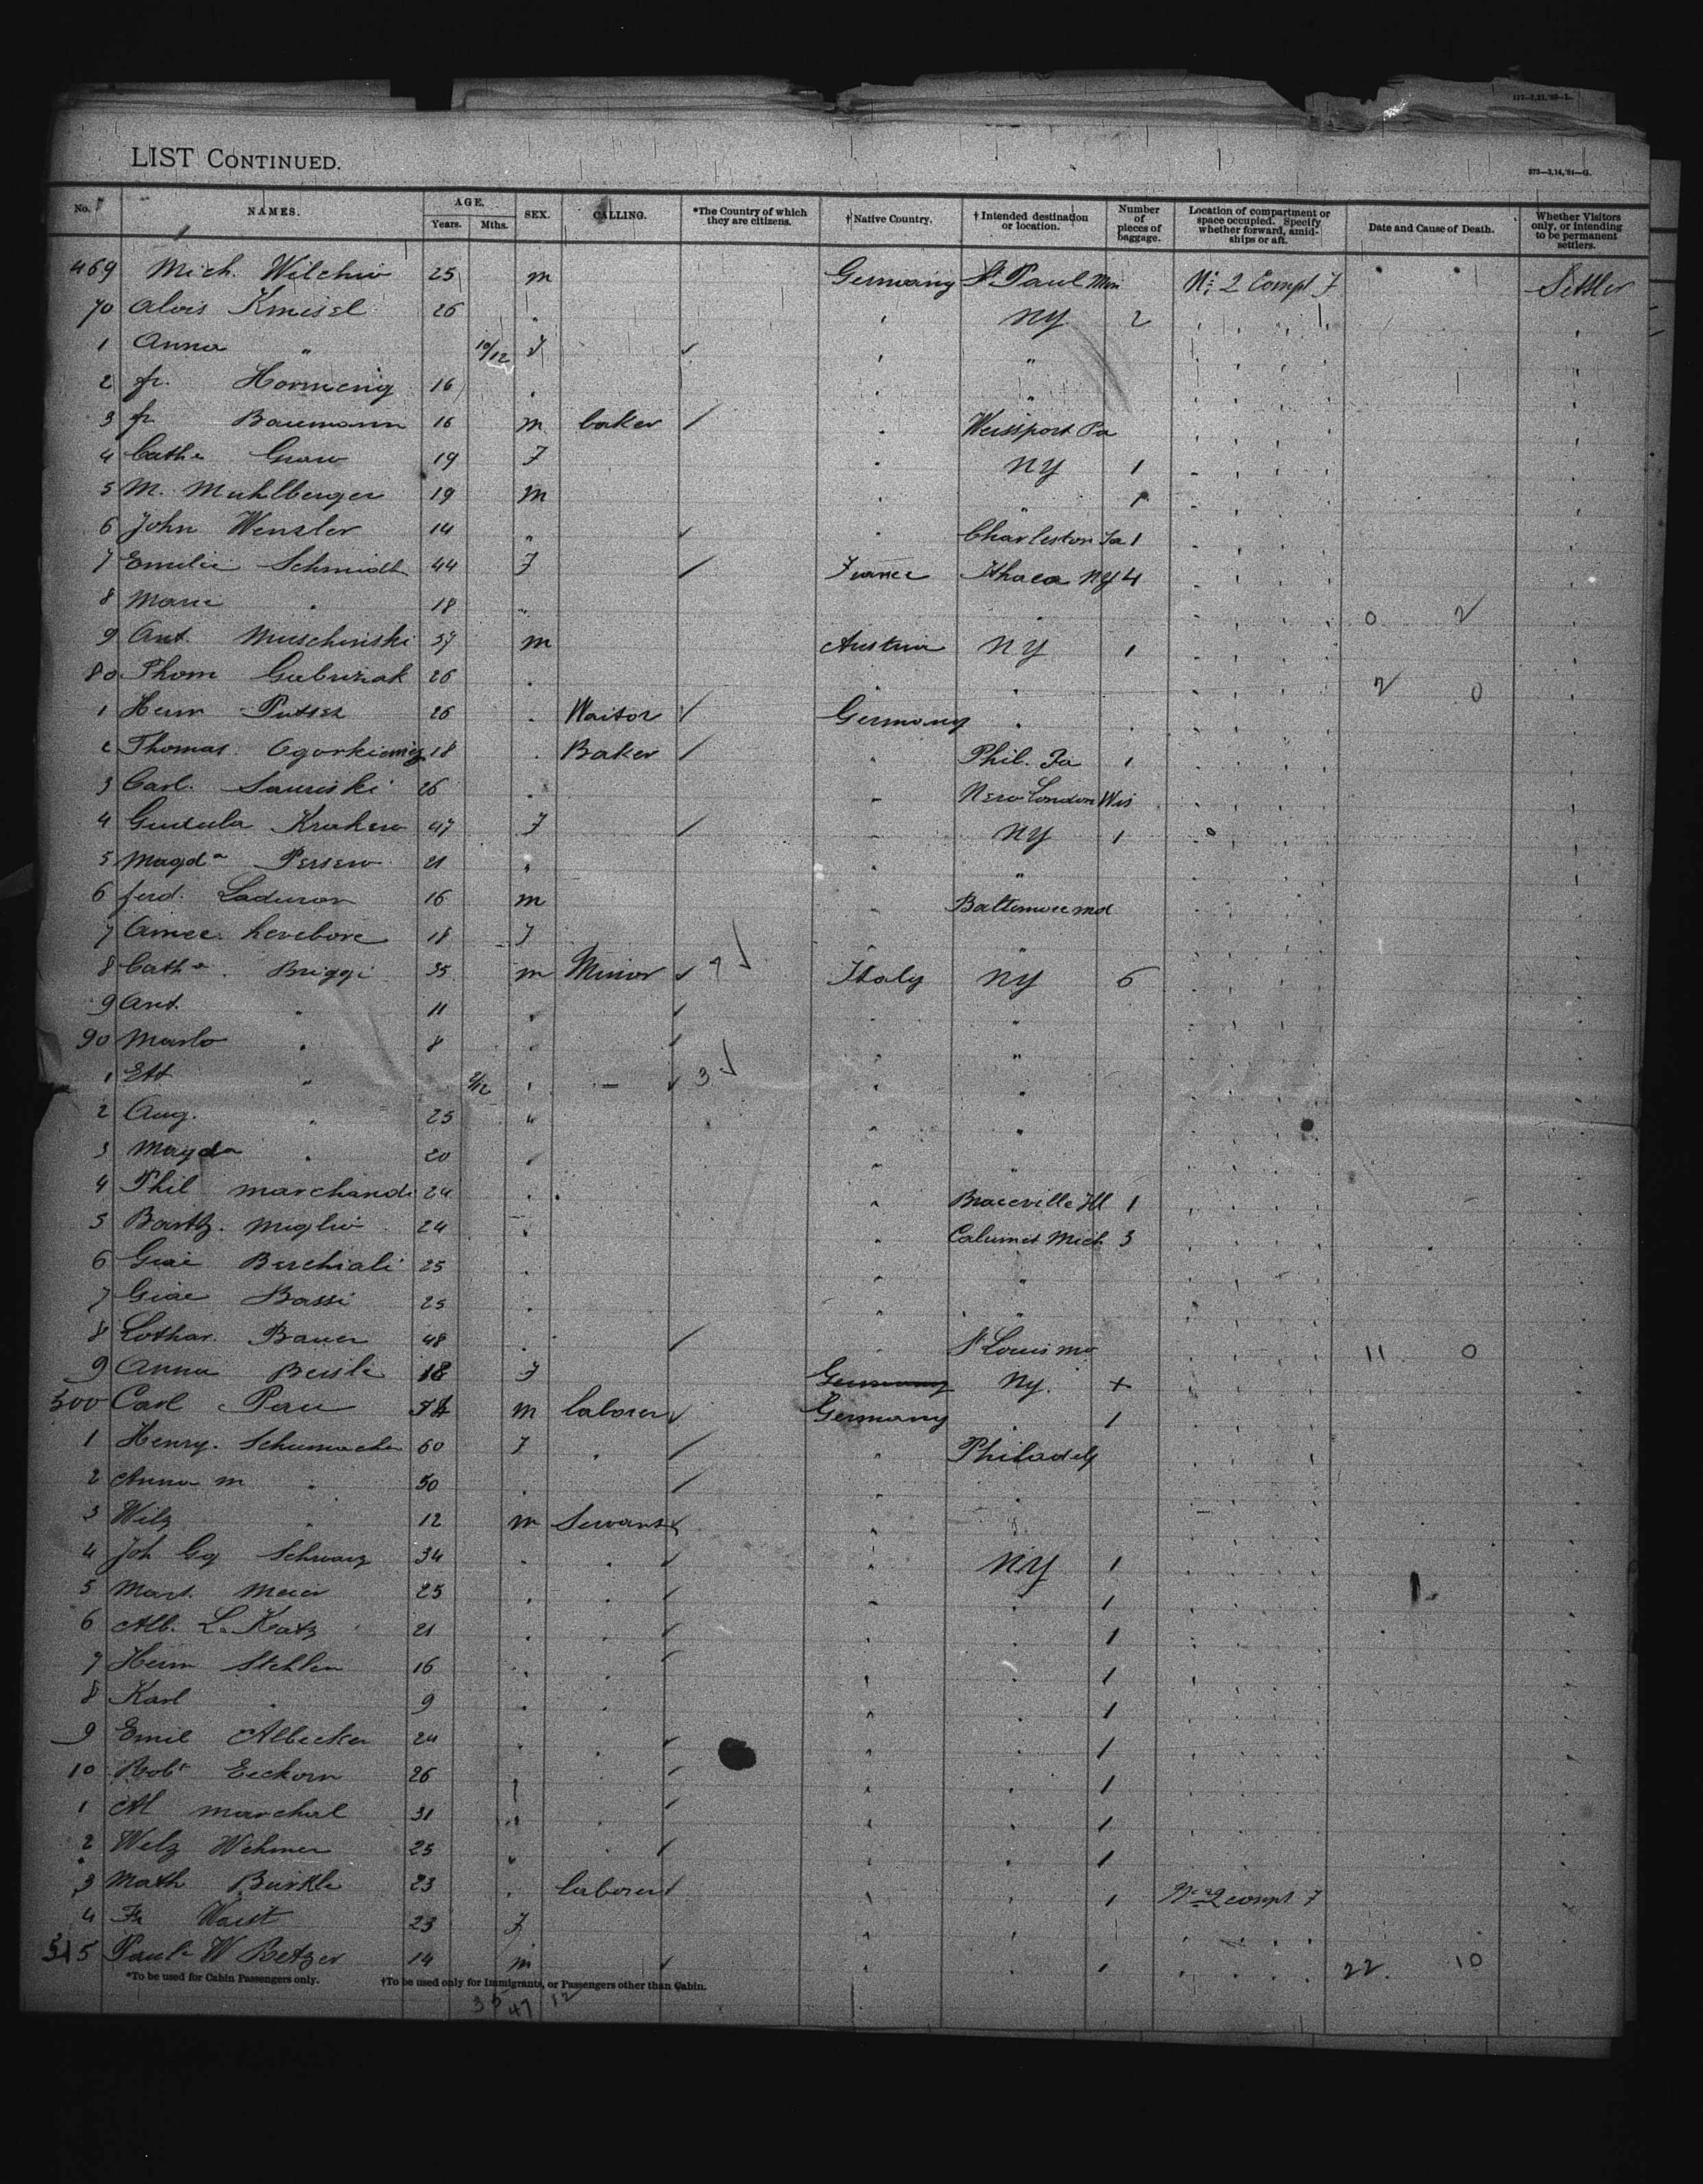 LIST CONTINUED.
373—3,14,'84—G.
No. NAMES. AGE. Years. Mths. SEX. CALLING. *The Country of which they are citizens. †Native Country. †Intended destination or location. Number of pieces of baggage. Location of compartment or space occupied. Specify whether forward, amidships or aft. Date and Cause of Death. Whether Visitors only, or intending to be permanent settlers.
469 Mich. 25 m Germany St Paul Min No 2 Compt F Settler
70 Alois Kmisel 26 " NY 2
1 Anna " 10/12 F "
2 fr. Hormenig 16 " "
3 fr Baumann 16 m baker Weissport Pa
4 Cath a Graw 19 F NY 1
5 M. Muhlberger 19 m " 1
6 John Wenzler 14 " Charleston Ia 1
7 Emilie Schmidt 44 F France Ithaca NY 4
8 Marie " 18 " 0 2
9 Ant. Muschinski 37 m Austria NY 1
80 Thom Gubriziak 26 " " " 2 0
1 Herm Putser 26 " Waitor Germany "
2 Thomas Ogorkiewicz 18 " Baker " Phil. Pa 1
3 Carl. Sauriski 26 " " New London Wis
4 Gudula 47 F " NY 1
5 Magd a Persew 21 " " "
6 ferd. Laduron 16 m " Baltimore Md
7 Aimee 18 F " "
8 Cath a Briggi 35 m Minor 1 Italy NY 6
9 Ant. " 11 " " "
90 Marto " 8 " " "
1 Ett " 2/12 " — 3 " "
2 Aug. " 25 " " "
3 Magda " 20 " " "
4 Phil Marchandi 24 " " Braceville Ill 1
5 Barth. Miglio 24 " " Calumet Mich 3
6 Giac Berchiali 25 " " "
7 Giac Bassi 25 " " "
8 Lothar. Bauer 48 " St Louis Mo 11 0
9 Anna 18 F Germany NY. +
500 Carl Peru m laborer Germany " 1
1 Henry. Schumacher 60 F " " Philadelp
2 Anna M " 50 " " "
3 Wilz " 12 m Servant " "
4 Joh Gg Schwarz 34 " " " NY 1
5 Mart. Meier 25 " " " " 1
6 Alb. L. Katz 21 " " " " 1
7 Herm Stehlen 16 " " " " 1
8 Karl " 9 " " " " 1
9 Emil Albecker 24 " " " " 1
10 Robt Eckorn 26 " " " 1
1 Al Marchal 31 " " " " 1
2 Welz Wehmer 25 " " " " 1
3 Math Burkle 23 " laborer " " 1 No 2 compt F
4 Fr Waist 23 F " "
515 Paul W Betzer 14 m " " 1 22. 10
*To be used for Cabin Passengers only. †To be used only for Immigrants, or Passengers other than Cabin.
35 47 12